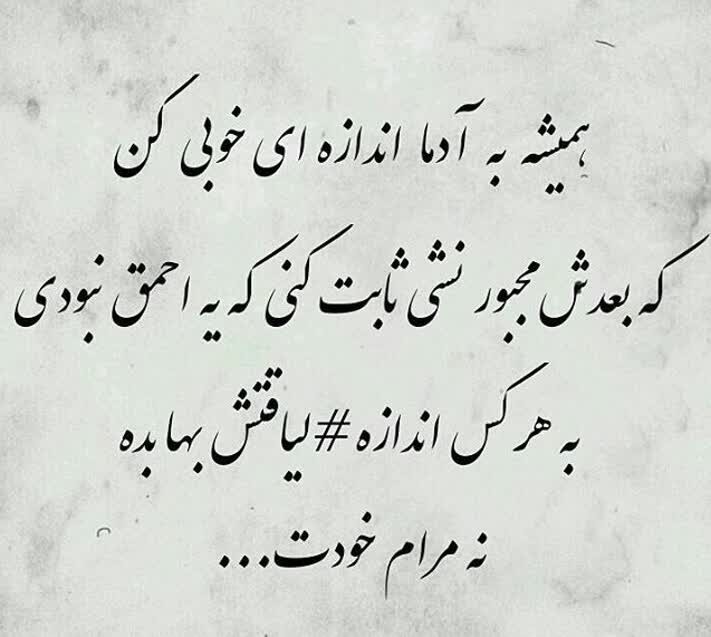 همیشه به آدما اندازه ای خوبی کن
که بعدش مجبور نشی ثابت کنی که یه احمق نبودی
به هر کس اندازه #لیاقتش بها بده
نه مرام خودت...